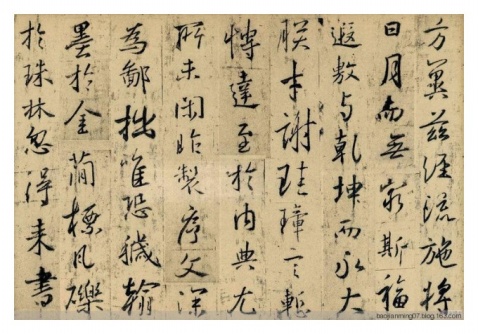 方冀茲經流施將
日月而無窮斯福
遐敷与乾坤而永大
朕才謝珪璋言慙
博達至於内典尤
所未閑昨製序文深
為鄙拙唯恐穢翰
墨於金簡標瓦礫
於珠林忽得来書
baojianming07.blog.163.com